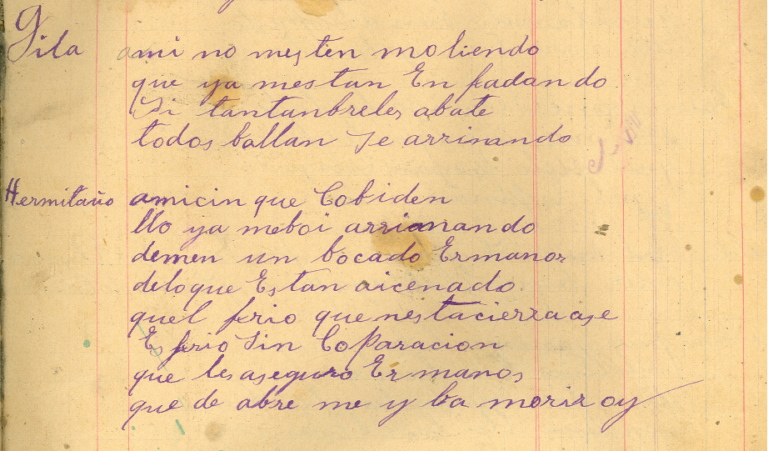 Gila ami no mesten moliendo
que ya mestan En fadando
Si tantanbreles abate
todos ballan se arrimando
Hermitaño amicin que Cobiden
llo ya meboi arrimando
demen un bocado Ermanos
deloque Estan aicenado
quel frio que nestacierra ase
E frio Sin CoParacion
que les aseguro Ermanos
que de abre me y ba morir oy